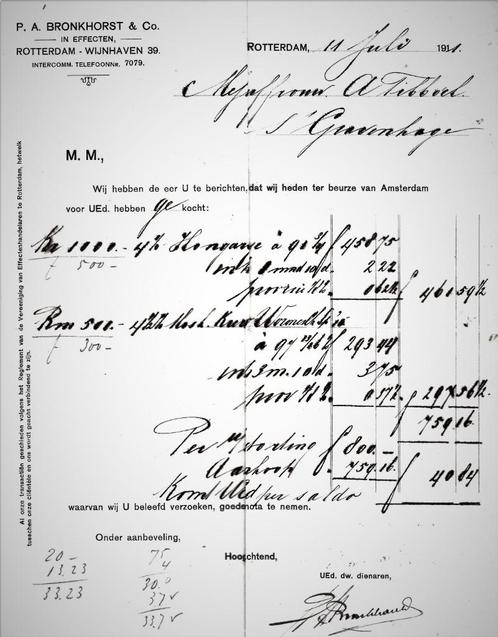 P. A. BRONKHORST & Co.
IN EFFECTEN,
ROTTERDAM - WIJNHAVEN 39.
INTERCOMM. TELEFOONNR. 7079.
ROTTERDAM, 11 Juli 1911.
Mejuffrouw A Tebbel
's Gravenhage
M. M.,
Wij hebben de eer U te berichten, dat wij heden ter beurze van Amsterdam
voor UEd. hebben ge kocht:
Kr 1000.- 4% Hongaarse à 90 f 458 75
f 500 - 2 22
prov f 461 59 ½
Rm 500.- 4½% Mosk. Kiew Woronesch
f 300 - à 97 f 293 44
3 75
prov 297 56 ½
759 16
Per storting f 800.-
Aankoop 759.16. f 40 84
Komt UEd per saldo
waarvan wij U beleefd verzoeken, goede nota te nemen.
Onder aanbeveling,
Hoogachtend,
UEd. dw. dienaren,
20 -
13.23
33.23
75
4
Al onze transactiën geschieden volgens het Reglement van de Vereeniging van Effectenhandelaren te Rotterdam, hetwelk
tusschen onze cliëntèle en ons wordt geacht verbindend te zijn.